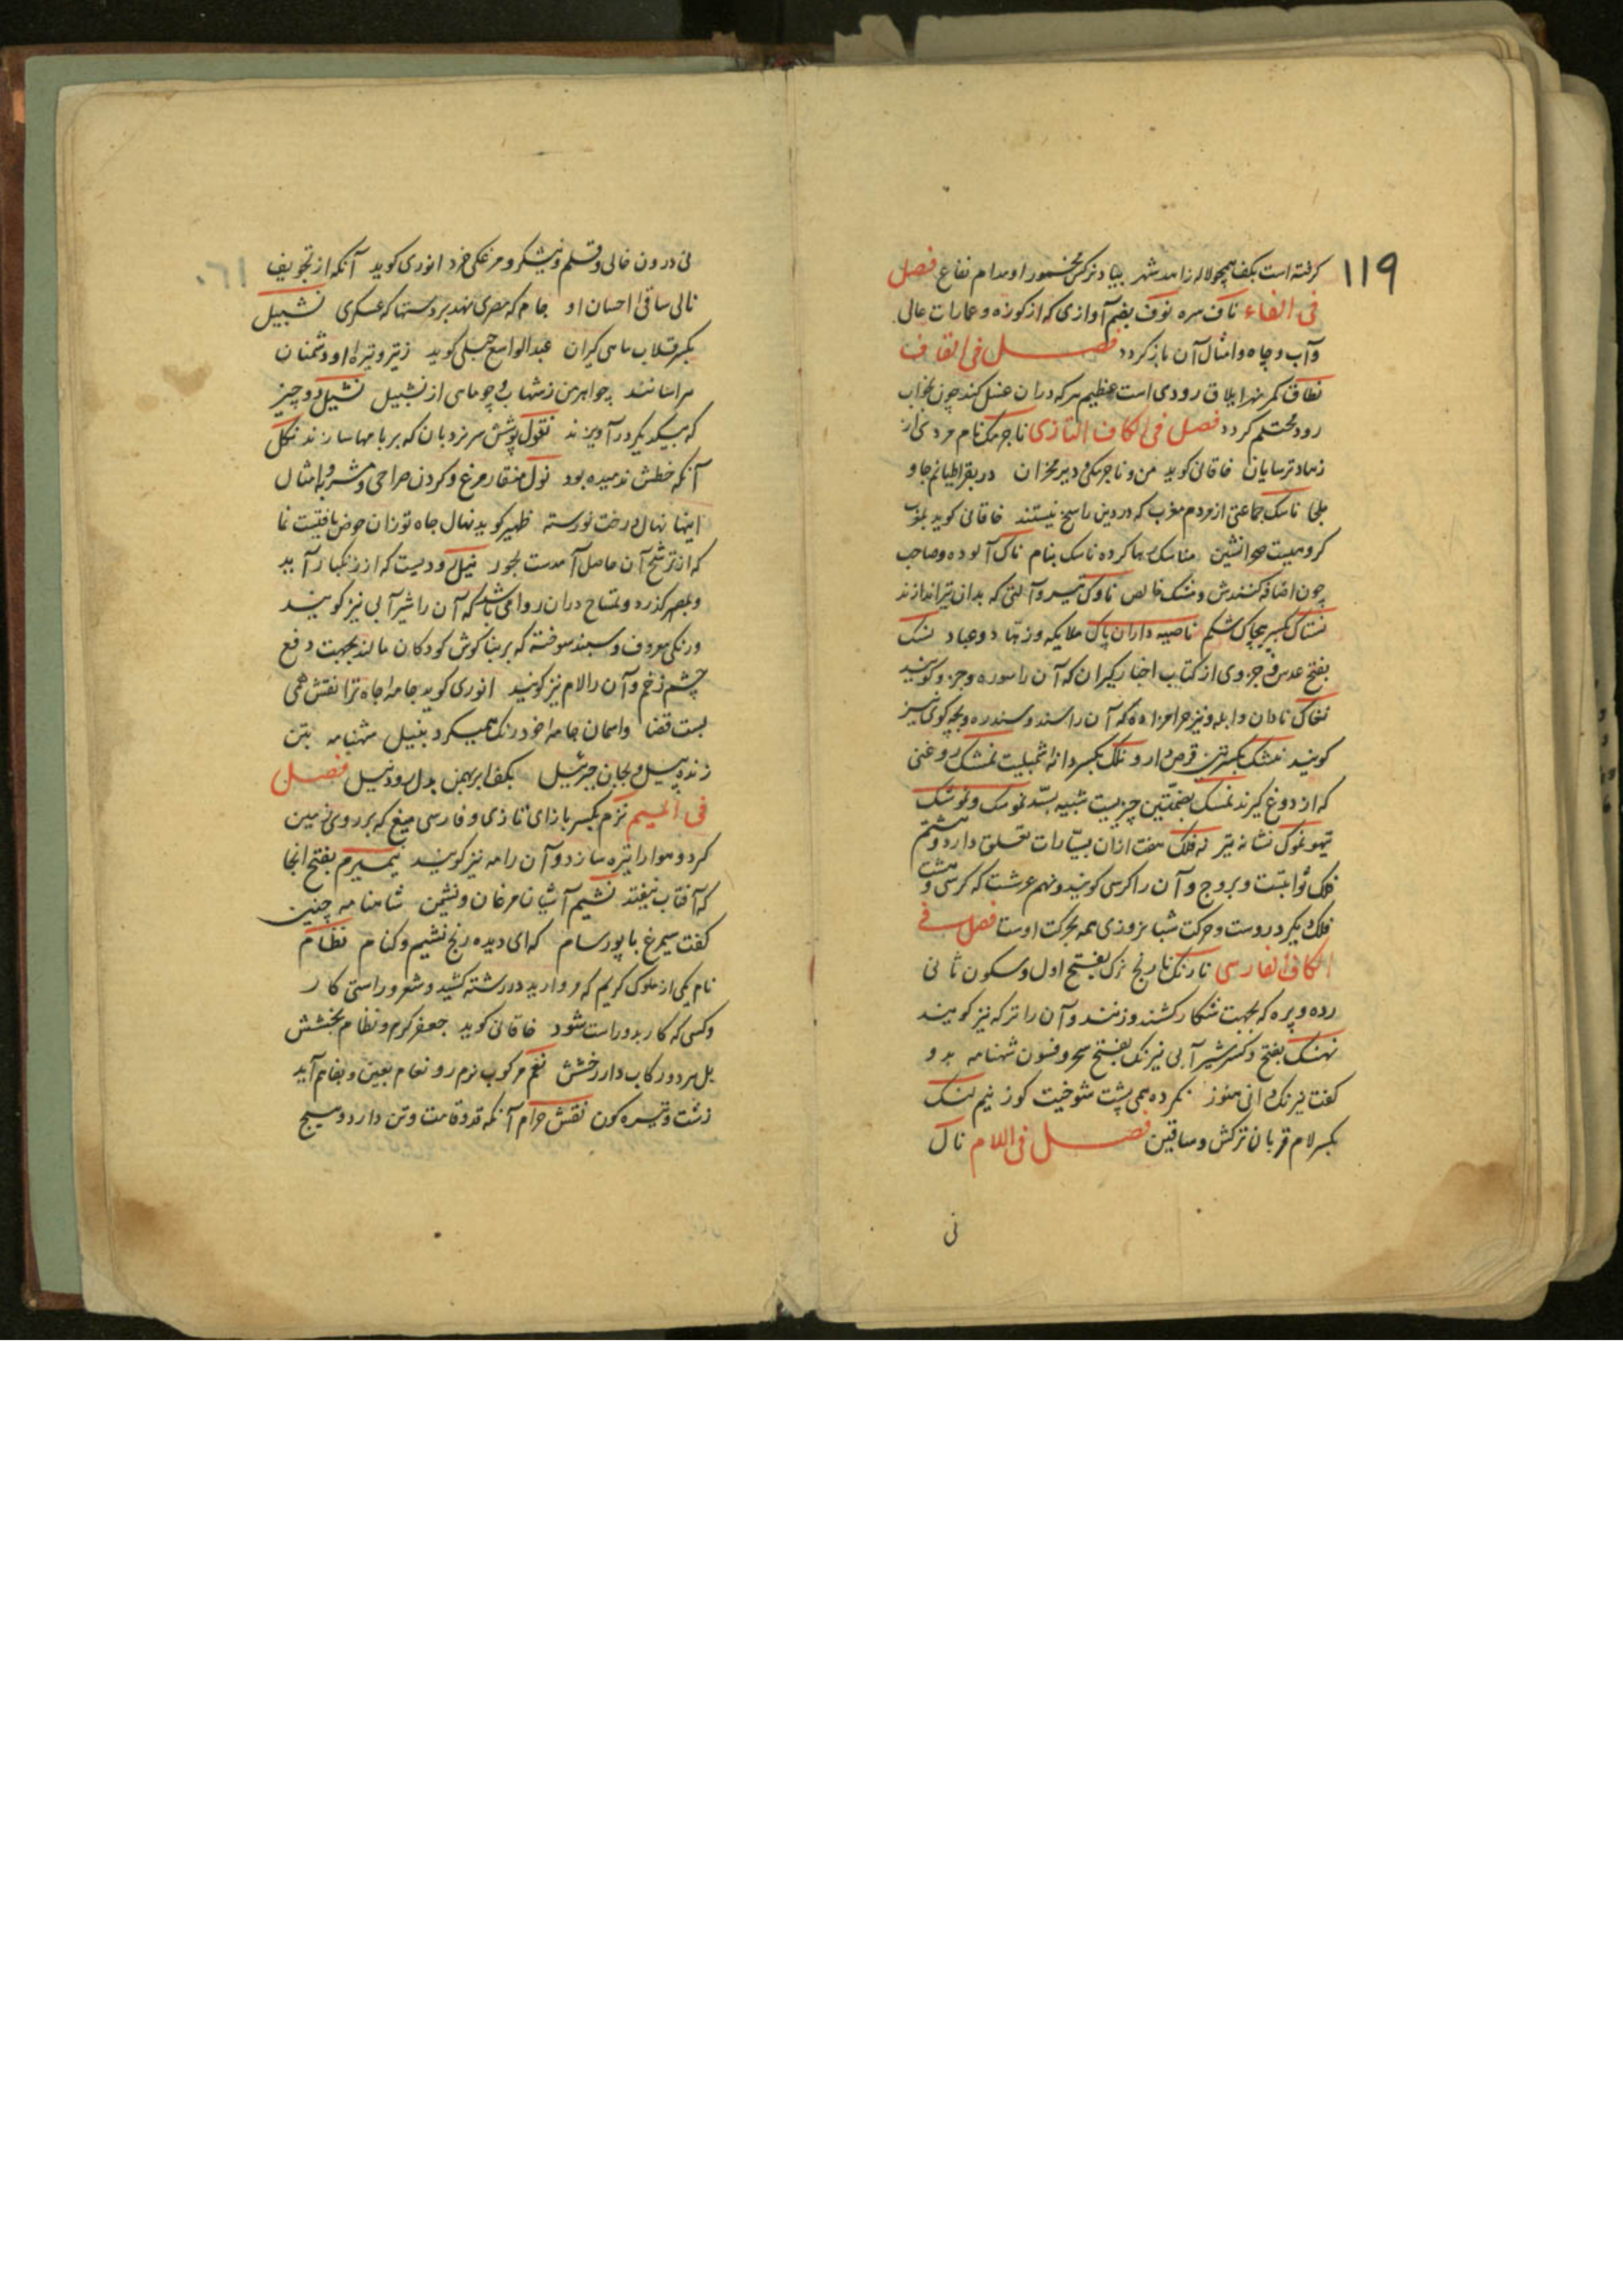 ۱۱۹
گرفته است بکف همچو لاله زاهد شهر بیاد نرکس مخمور او مدام نفاع فصل
فی الفاء ناف سره نوف بضم آوازی که از کوزه و عمارات عالی
و آب و چاه و امثال آن باز کردد فصل فی القاف
نطاق کمر نهرایلاق رودی است عظیم هر که دران غسل کند چون بخواب
رود محتلم کردد فصل فی الکاف التازی ناجرمک نام مردی از
زهاد ترسایان خاقانی کوید من و ناجرمکی و دیر مخران در بقراطیانم جا و
ملجا ناسک جماعتی از مردم مغرب که در دین راسخ نیستند خاقانی کوید
کروهیست هوانشین مناسک رها کرده ناسک بنام ناک آلوده و صاحب
چون اضافه کنندش و مشک خالص ناوک تیر و آلتی که بدان تیر اندازند
نستاک بکسر پیچاک شکم ناصیه داران پاک ملایکه و زهاد و عباد نسک
بفتح عدس و جزوی از کتاب اخبار کبران که آن را سوره و جزو کویند
نغاک نادان و ابله و نیز حرامزاده که آن را سند و سندره و بچه کوی نیز
کویند نمشک بکسرتین قرص دارو نلک بکسر دانه شمبلیت نمشک روغنی
که از دوغ کیرند نمسک بضمتین چیزیست شبیه بسد نموسک و نوشک
تیهو نموک نشانه تیر نه فلک هفت ازان بسیارات تعلق دارد و هشتم
فلک ثوابتست و بروج و آن را کرسی کویند و نهم عرشست که کرسی و هشت
فلک دیکر در وست و حرکت شبانروزی همه بحرکت اوست فصل فی
الکاف الفارسی نارنک نارنج نرک بفتح اول و سکون ثانی
رده و پره که بجهت شکار کشند و زنند و آن را ترکه نیز کویند
نهنک بفتح و کسر شیر آبی نیرنک بفتح سحر و فسون شهنامه بدو
کفت نیرنک دانی هنوز نکرده همی پشت شوخیت کوز نیم لنک
بکسر لام قربان ترکش و ساقین فصل فی اللام نال
نی
نی درون خالی و قلم و نیشکر و مرغکی خرد انوری کوید آنکه از تجویف
نالی ساقی احسان او جام که مصری نهد بر دستها که عسکری نشبیل
بکسر قلاب ماهی کیران عبدالواسع جبلی کوید زتیر و تیر او دشمنان
هراسانند چو اهرمن ز شهاب و چو ماهی از نشبیل نشیل دو چیز
که بیکدیکر در آویزند نغول پوشش سر نردبان که بر بامها سازند نکل
آنکه خطش ندمیده بود نول منقار مرغ و کردن صراحی و مشربه و امثال
اینها نهال درخت نورسته ظهیر کوید نهال جاه تو زان حوض یافتست نما
که از ترشح آن حاصل آمدست بحور نیل رودیست که از زنکبار آید
و بمصر کذرد و تمساح دران رود می باشد که آن را شیر آبی نیز کویند
و رنکی معروف و سپند سوخته که بر بناکوش کودکان مالند بجهت دفع
چشم زخم و آن را لام نیز کویند انوری کوید جامه جاه ترا نقش همی
بست قضا و اسمان جامه خود رنک همیکرد بنیل شهنامه بتن
زنده پیل و بجان جبرئیل بکف ابر بهمن بدل رود نیل فصل
فی المیم نزم بکسر با زای تازی و فارسی میغ که بر روی زمین
کرد و هوا را تیره سازد و آن را مه نیز کویند نیمیرم بفتح انجا
که آفتاب نیفتد نشیم آشیان مرغان و نشیمن شاهنامه چنین
کفت سیمرغ با پور سام که ای دیده رنج نشیم و کنام نظام
نام یکی از ملوک کریم که مروارید در رشته کشید و شعر و راستی کار
و کسی که کار بدو راست شود خاقانی کوید جعفر کرم و نظام بخشش
بل هر دو رکاب دار رخشش نغم مرکوب نرم رو نغام بغین و بفا هم آید
زشت و تیره کون نقش حرام آنکه قد و قامت و تن دارد و هیچ